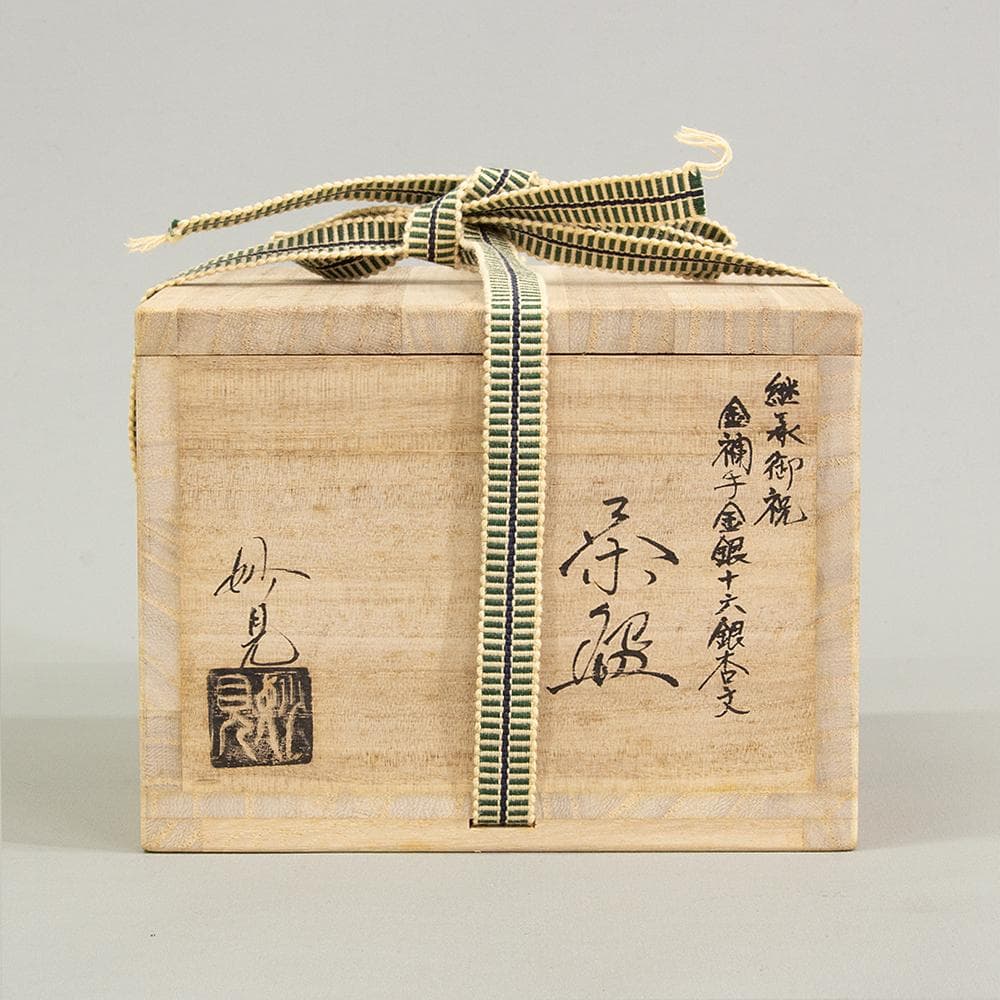 継承御祝
金襴手金銀十六銀杏文
茶盌
妙見
妙見